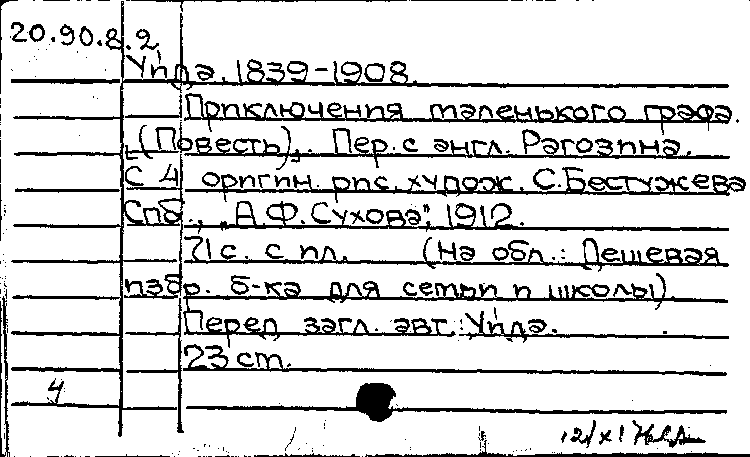 20.90.8.2
Уйда. 1839-1908.
Приключения маленького графа.
[(Повесть)]. Пер. с англ. Рагозина.
С 4 оригин. рис. худож. С. Бестужева
Спб., "А.Ф. Сухова", 1912.
71 с. с ил. (На обл.: Дешевая
избр. б-ка для семьи и школы)
Перед загл. авт.: Уйда.
23 см.
4
12/XI